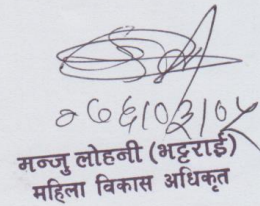 २०७६/०३/०५
मन्जु लोहनी (भट्टराई)
महिला विकास अधिकृत